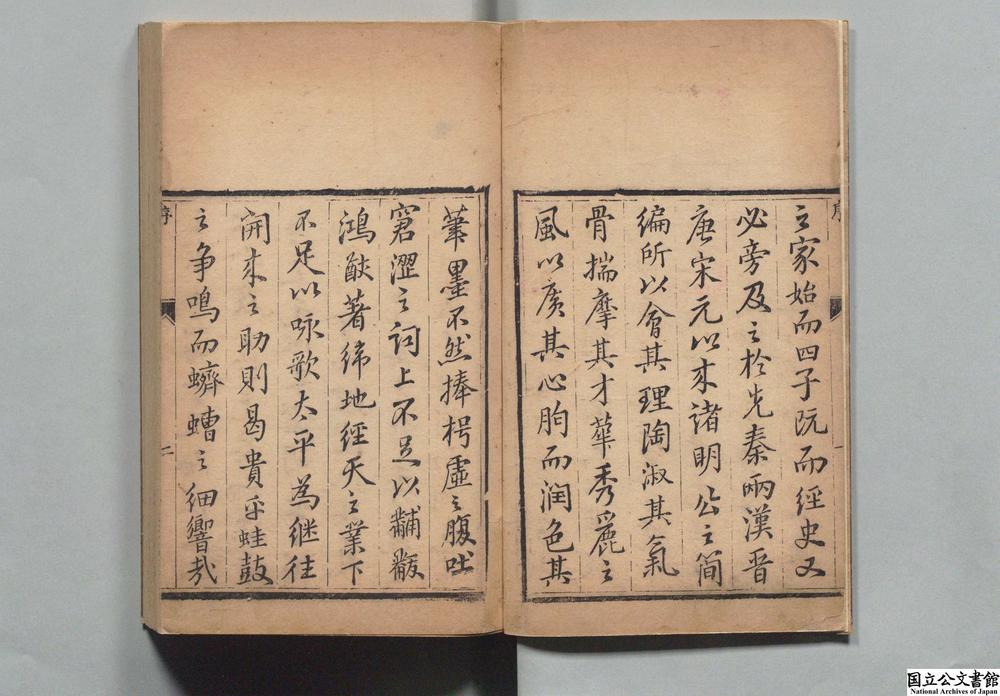 序
一
之家始而四子既而經史又
必旁及之於先秦兩漢晉
唐宋元以來諸明公之簡
編所以會其理陶淑其氣
骨揣摩其才華秀麗之
風以廣其心胸而润色其
筆墨不然捧枵虛之腹吐
窘澀之詞上不足以黼黻
鴻猷著緯地經天之業下
不足以咏歌太平為继往
開來之助則曷貴乎蛙鼓
之争鳴而蠐螬之细響哉
序
二
国立公文書館
National Archives of Japan